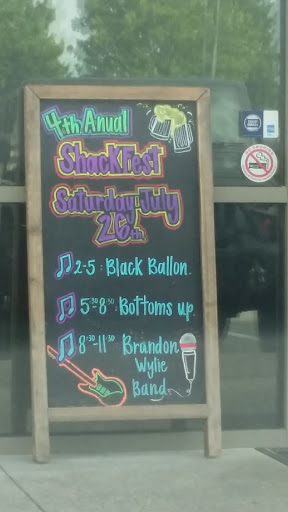 4th Anual
ShackFest
Saturday July
26th
2-5: Black Ballon.
5:30-8:30 Bottoms up
8:30-11:30 Brandon
Wylie
Band